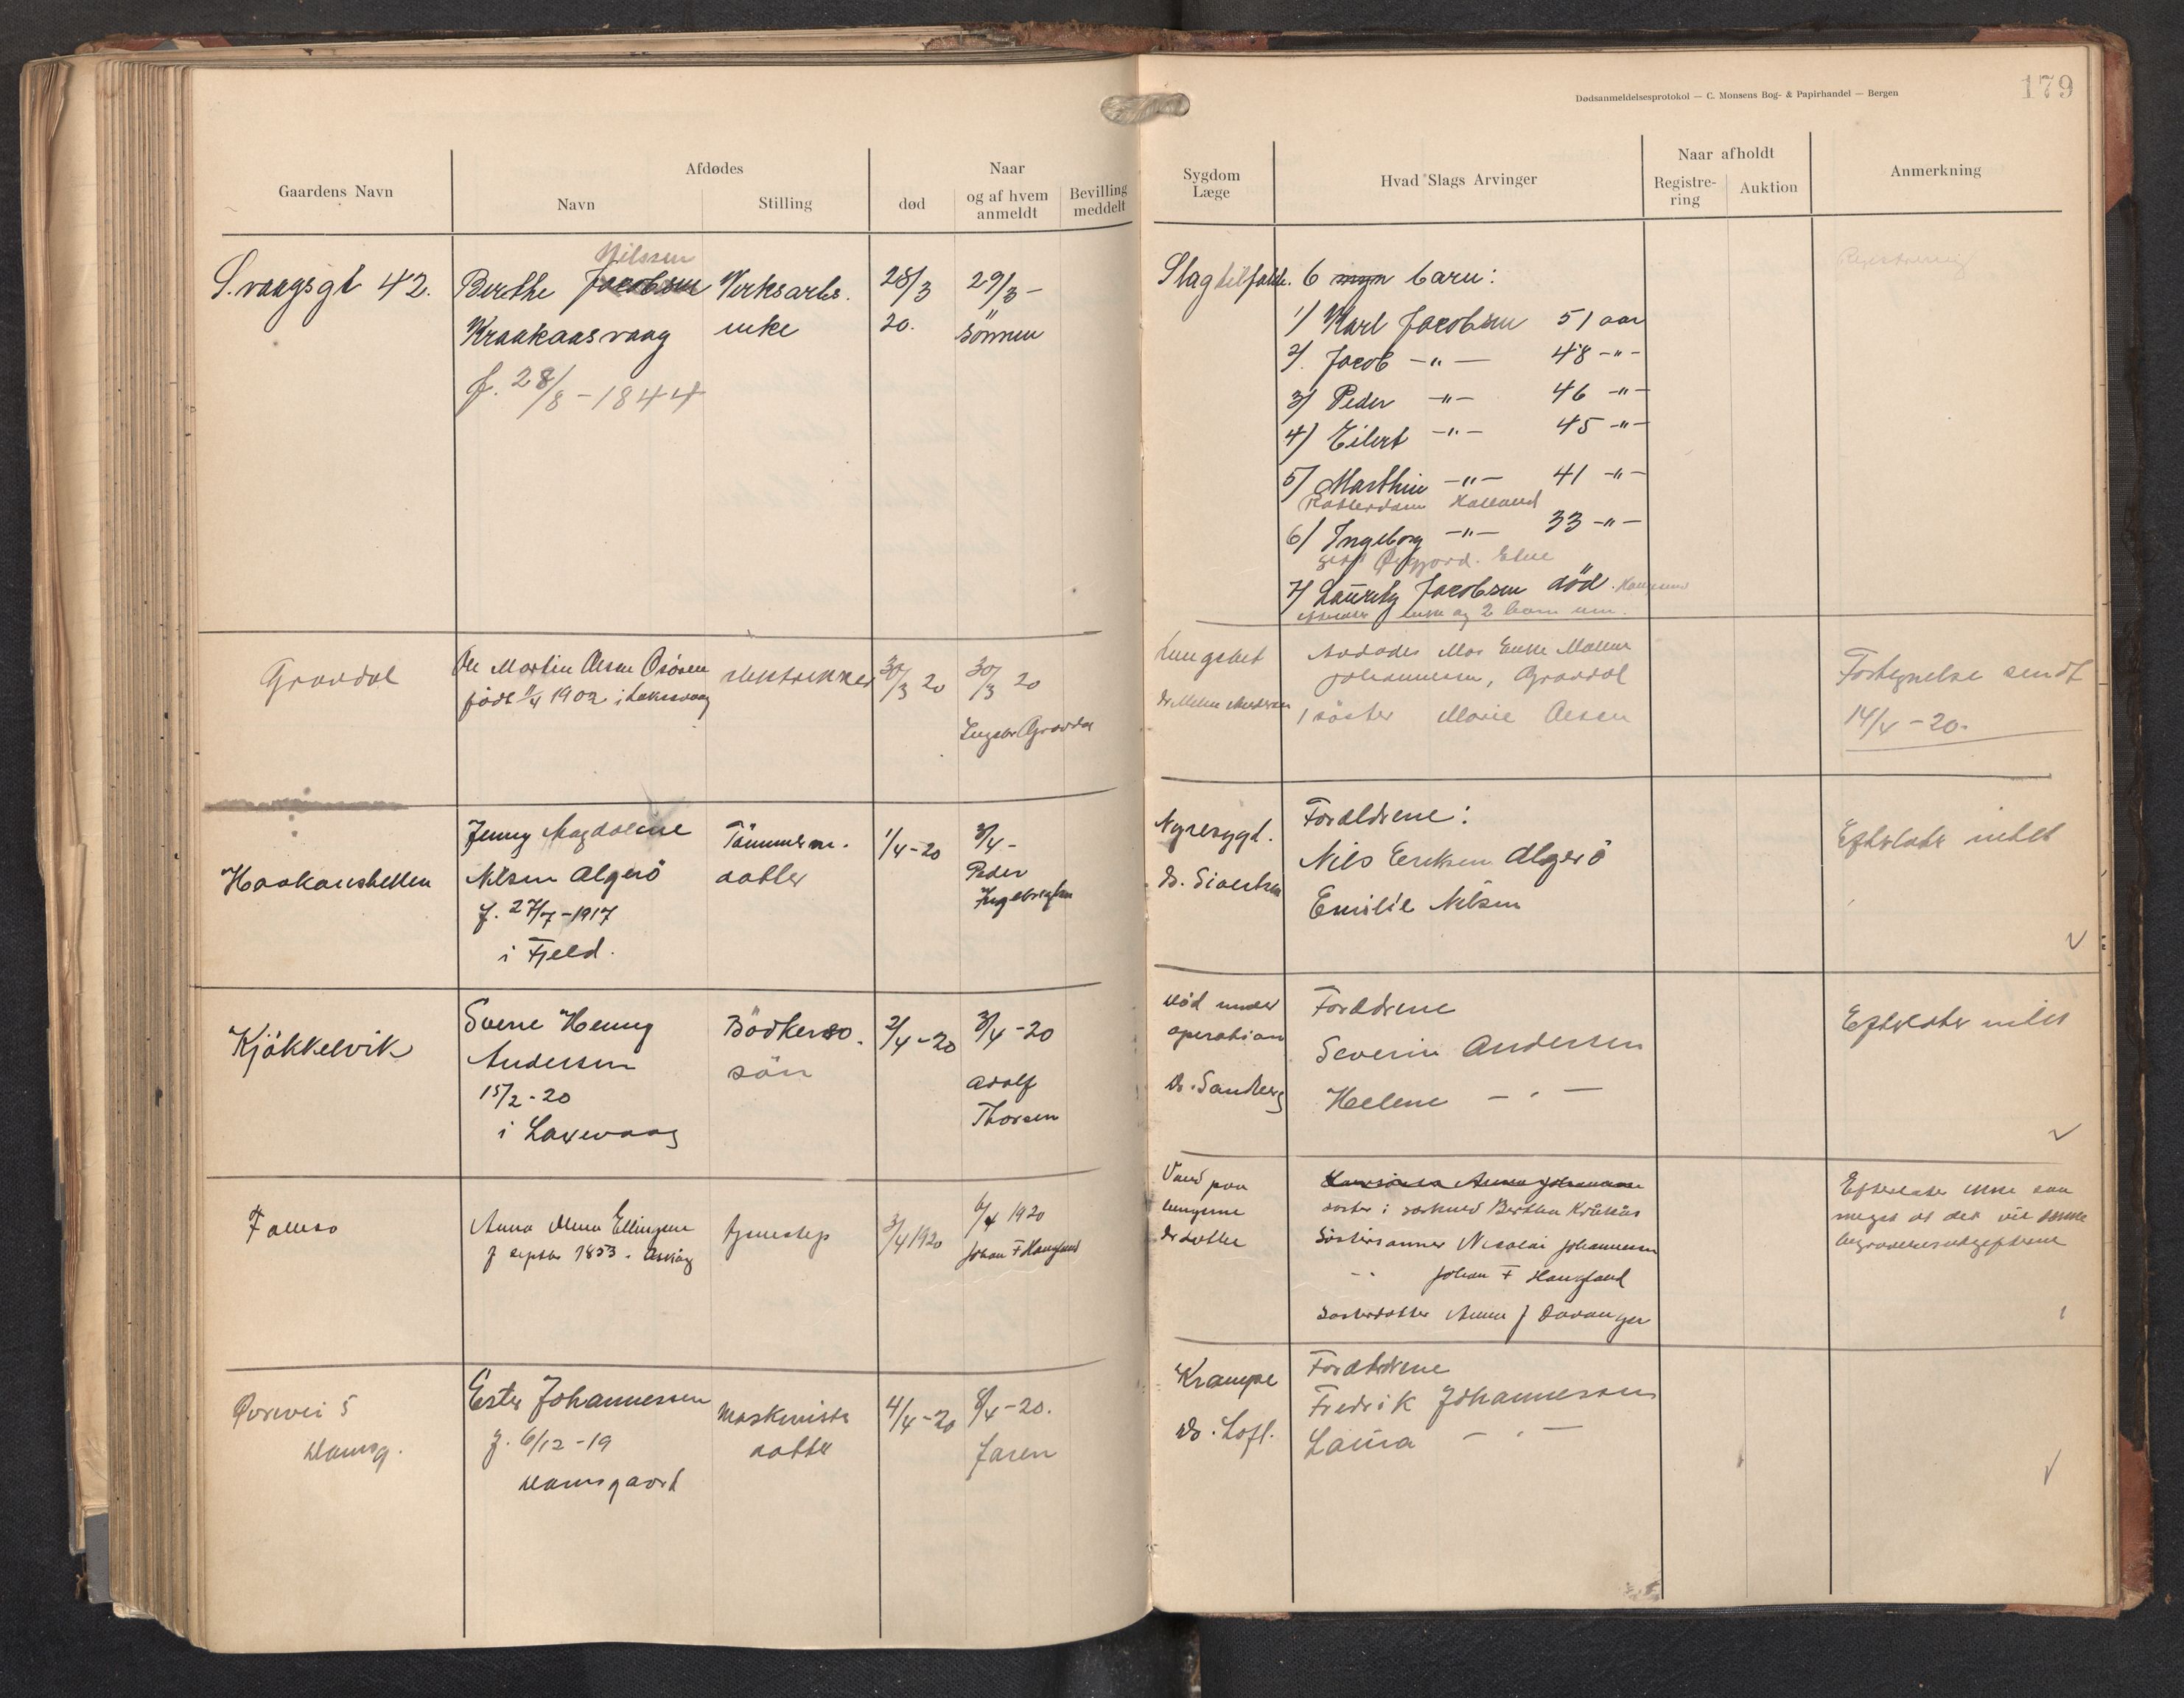 179
Dødsanmeldelsesprotokol — C. Monsens Bog- & Papirhandel — Bergen
Gaardens Navn
Afdødes
Navn
Stilling
død
Naar
og af hvem
anmeldt
Bevilling
meddelt
Sygdom
Læge
Hvad Slags Arvinger
Naar afholdt
Registre-
ring
Auktion
Anmerkning
S.vaagsgt 42.
Nilssen
Berthe Jacobsen
Kraakaasvaag
f. 28/8 - 1844
Verksarb.
enke
28/3
20.
29/3 -
Sönnen
Slagtilfælde.
6 myn barn:
1) Karl Jacobsen 51 aar
2). Jacob -"- 48 -"-
3) Peder -"- 46 -"-
4) Eilert -"- 45 -"-
5) Marthin -"- 41 -"-
Rotterdam Holland
6) Ingeborg -"- 33 -"-
Etne
7) Lauritz Jacobsen död.
enke og 2 barn
Registrering
Gravdal
Ole Martin Olsen Osören
født 9/4 1902 i Laksevaag
30/3 20
30/3 20
Gravdal
Lungebet
Johannessen, Gravdal
1 söster Marie Olsen
Fortegnelse sendt
14/4 - 20.
Haakonshellen
Jenny Magdalene
Nilsen Algerö
f. 27/7 - 1917
i Fjeld.
Tömmerm.
datter
1/4 - 20
3/4 -
Peder
Ingebrigtsen
Nyresygd.
Dr. Sivertsen
Forældrene:
Nils Eriksen Algerö
Emilie Nilsen
Efterlader intet
Kjökkelvik
Sverre Henry
Andersen
15/2 - 20
i Laxevaag
Bödkers
sön
2/4 - 20
3/4 - 20
Adolf
Thorsen
död under
operation
Dr. Sandberg
Forældrene
Severin Andersen
Helene - " -
Efterlader intet
Anna Olena Ellingsen
f septbr 1853 - Asköy
3/4 1920
6/4 1920
Johan F Haugland
Vand paa
lungerne
Dr Lothe
söster i Berthe Kråkås
Söstersønner Nicolai Johannessen
-"- Johan F Haugland
Søsterdatter Anna J Davanger
Efterlader ikke saa
meget at det vil dække
begravelsesutgifterne
Øvrevei 5
Damsg.
Ester Johannessen
f. 6/12 - 19
Damsgaard
Maskinists
datter
4/4 - 20
8/4 - 20.
Faren
Krampe
Dr. Loft.
Forældrene
Fredrik Johannessen
Laura - " -